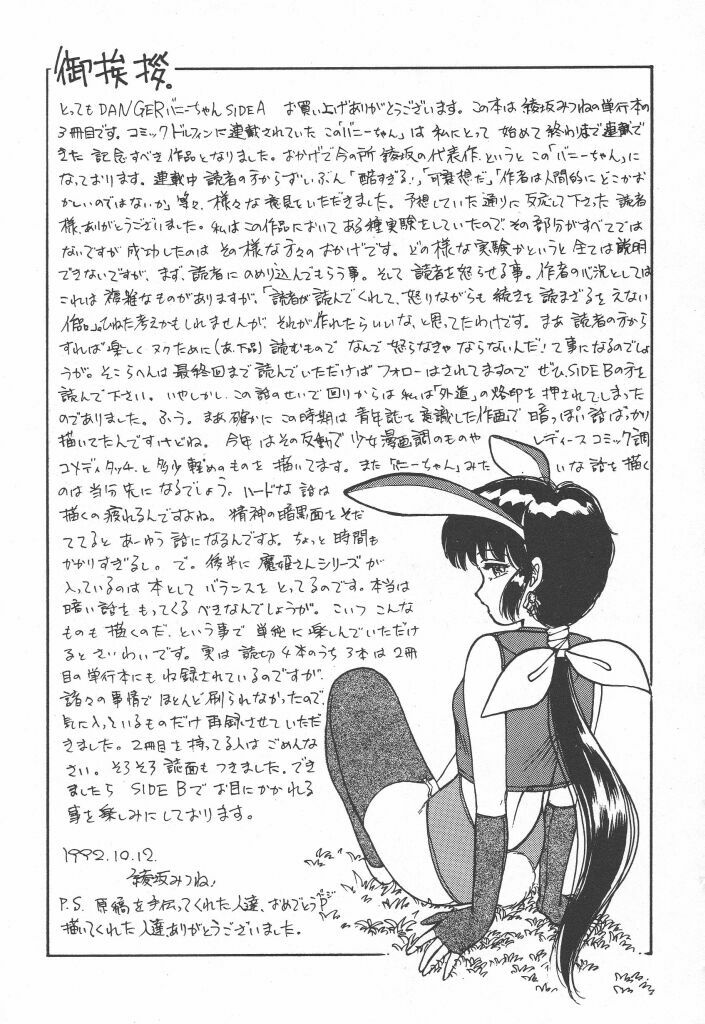 御挨拶。
とってもDANGERバニーちゃんSIDEA お買い上げありがとうございます。この本は綾坂みつねの単行本の
3冊目です。コミックドルフィンに連載されていたこの「バニーちゃん」は私にとって始めて終わりまで連載で
きた記念すべき作品となりました。おかげで今の所綾坂の代表作、というとこの「バニーちゃん」に
なっております。連載中読者の方からずいぶん「酷すぎる!」、「可哀想だ」、「作者は人間的にどこかお
かしいのではないか」等々、様々な意見をいただきました。予想していた通りに反応して下さった読者
様、ありがとうございました。私はこの作品においてある種実験をしていたので、その部分がすべてでは
ないですが成功したのはその様な方々のおかげです。どの様な実験かというと全ては説明
できないですが、まず、読者にのめり込んでもらう事。そして読者を怒らせる事。作者の心況としては
これは複雑なものがありますが、「読者が読んでくれて、怒りながらも続きを読まざるをえない
作品」。ひねた考えかもしれませんが、それが作れたらいいな、と思ってたわけです。まあ読者の方から
すれば楽しくヌクために(あ、下品)読むものでなんで怒らなきゃならないんだ!て事になるのでしょ
うが。そこらへんは最終回まで読んでいただけばフォローはされてますのでぜひSIDE Bの方を
読んで下さい。いやしかし、この話のせいで回りからは私は「外道」の烙印を押されてしまった
のでありました。ふう。まあ確かにこの時期は青年誌を意識した作画で暗っぽい話ばっかり
描いてたんですけどね。今年はその反動で少女漫画調のものやレディースコミック調
コメディタッチ、と多少軽めのものを描いてます。また「バニーちゃん」みたいな話を描く
のは当分先になるでしょう。ハードな話は
描くの疲れるんですよね。精神の暗黒面をそだ
ててるとあーゆう話になるんですよ。ちょっと時間も
かかりすぎるし。で。後半に魔姫さんシリーズが
入っているのは本としてバランスをとってるのです。本当は
暗い話をもってくるべきなんでしょうが。こいつこんな
ものも描くのだ、という事で単純に楽しんでいただけ
るとさいわいです。実は読切4本のうち3本は2冊
目の単行本にも収録されているのですが、
諸々の事情でほとんど刷られなかったので、
気に入っているものだけ再録させていただ
きました。2冊目を持ってる人はごめんな
さい。そろそろ誌面もつきました。でき
ましたらSIDE Bでお目にかかれる
事を楽しみにしております。
1992.10.12.
綾坂みつね
P.S. 原稿を手伝ってくれた人達、おめでとう
描いてくれた人達ありがとうございました。